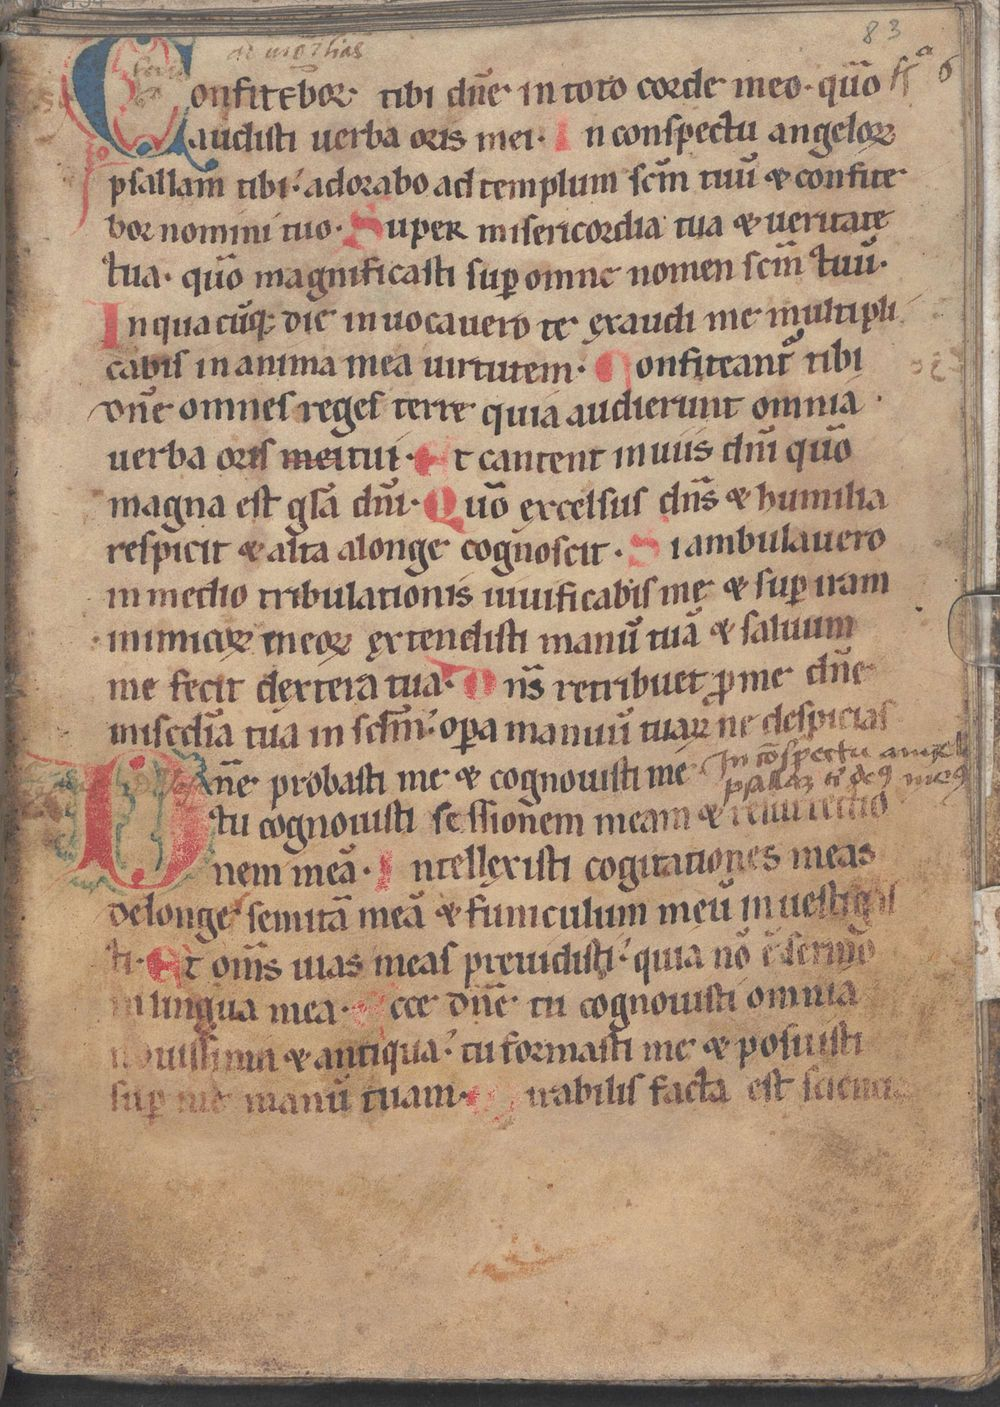 83
Confitebor tibi dn̄e in toto corde meo · qūo
audisti uerba oris mei · In conspectu angeloꝝ
psallam tibi · adorabo ad templum sc̄m tuū & confite
bor nomini tuo · Super misericordia tua & ueritate
tua · qūo magnificasti suꝑ omne nomen sc̄m tuū ·
In qua cūqꝫ die inuocauero te exaudi me multipli
cabis in anima mea uirtutem · Confiteant᷑ tibi
dn̄e omnes reges terre quia audierunt omnia
uerba oris mei tui · Et cantent in uiis dn̄i qūo
magna est gl̄a dn̄i · Qūo excelsus dn̄s & humilia
respicit & alta alonge cognoscit · Si ambulauero
in medio tribulationis uiuificabis me & suꝑ iram
inimicoꝝ meoꝝ extendisti manū tuā & saluum
me fecit dextera tua · Dn̄s retribuet ꝓ me dn̄e
misc̄dia tua in sc̄lm̄ · oꝑa manuū tuaꝝ ne despicias
Dn̄e probasti me & cognouisti me
In cōspectu angel
psallaꝫ ti deꝰ meꝰ
tu cognouisti sessionem meam & resurrectio
nem meā · Intellexisti cogitationes meas
delonge semitā meā & funiculum meū inuestiga
sti · Et om̄s uias meas preuidisti · quia nō ē sermo
in lingua mea · Ecce dn̄e tu cognouisti omnia
nouissima & antiqua · tu formasti me & posuisti
suꝑ me manū tuam · Mirabilis facta est scientia